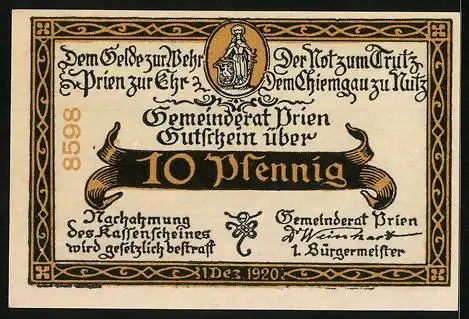 Dem Gelde zur Wehr
Der Not zum Trutz
Prien zur Ehr
Dem Chiemgau zu Nutz
8598
Gemeinderat Prien
Gutschein über
10 Pfennig
Nachahmung
des Kassenscheines
wird gesetzlich bestraft
Gemeinderat Prien
Dr Weinhart
1. Bürgermeister
1. Dez. 1920